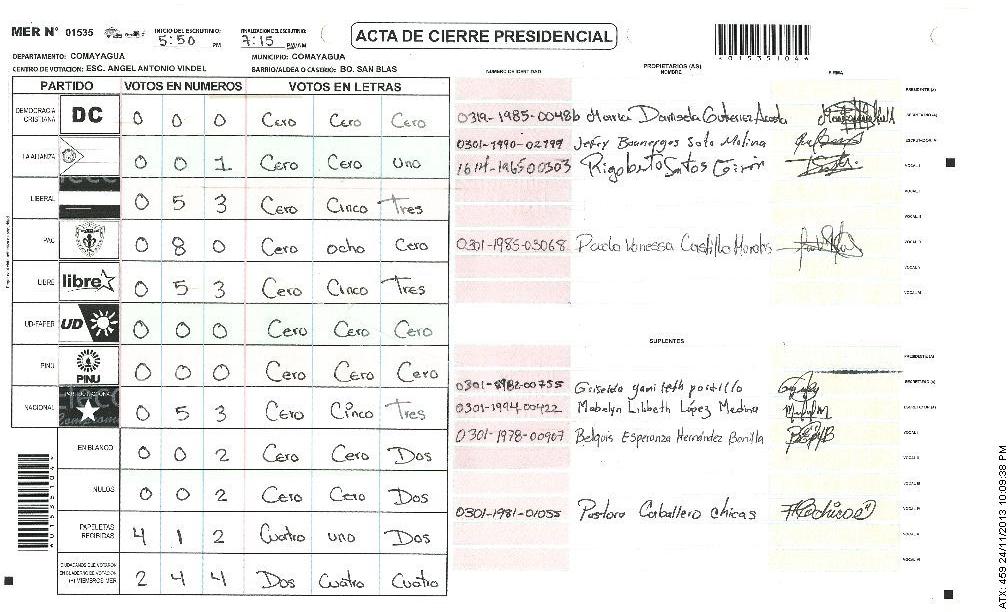 MER N° 01535 INICIO DEL ESCRUTINIO: 5:50 PM FINALIZACION DEL ESCRUTINIO: 7:15 PM/AM
ACTA DE CIERRE PRESIDENCIAL
DEPARTAMENTO: COMAYAGUA MUNICIPIO: COMAYAGUA
CENTRO DE VOTACION: ESC. ANGEL ANTONIO VINDEL BARRIO/ALDEA O CASERIO: BO. SAN BLAS
PARTIDO VOTOS EN NUMEROS VOTOS EN LETRAS
DEMOCRACIA CRISTIANA DC 0 0 0 Cero Cero Cero
LA ALIANZA 0 0 1 Cero Cero uno
LIBERAL 0 5 3 Cero Cinco Tres
PAC 0 8 0 Cero ocho Cero
LIBRE libre 0 5 3 Cero Cinco Tres
UD-FAPER UD 0 0 0 Cero Cero Cero
PINU PINU 0 0 0 Cero Cero Cero
NACIONAL 0 5 3 Cero Cinco Tres
EN BLANCO 0 0 2 Cero Cero Dos
NULOS 0 0 2 Cero Cero Dos
PAPELETAS RECIBIDAS 4 1 2 Cuatro uno Dos
CIUDADANOS QUE VOTARON EN CUADERNO DE VOTACION (+) MIEMBROS MER 2 4 4 Dos Cuatro Cuatro
NUMERO DE IDENTIDAD PROPIETARIOS (AS) NOMBRE FIRMA
PRESIDENTE (A)
0319-1985-00486 Maria Daniela Gutierrez Acosta SECRETARIO (A)
0301-1990-02797 Jefry Boanerges Soto Molina
Rigoberto Santos Girón VOCAL I
VOCAL II
VOCAL III
0301-1985-03068 Paola Vanessa Castillo Morales
VOCAL V
SUPLENTES
PRESIDENTE (A)
Griselda yamileth portillo SECRETARIO (A)
0301-1994-00422 Mabelyn Lilibeth López Medina
0301-1978-00907 Belquis Esperanza Hernández Bonilla VOCAL I
VOCAL II
VOCAL III
0301-1981-01055 Pastora Caballero chicas
ATX: 459 24/11/2013 10:09:38 PM